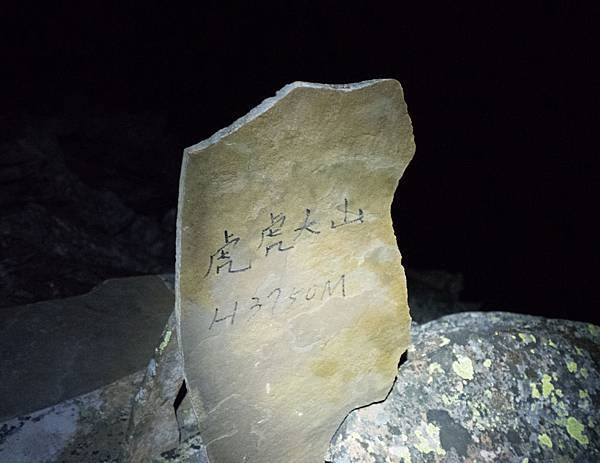 虎虎大山
H3750M